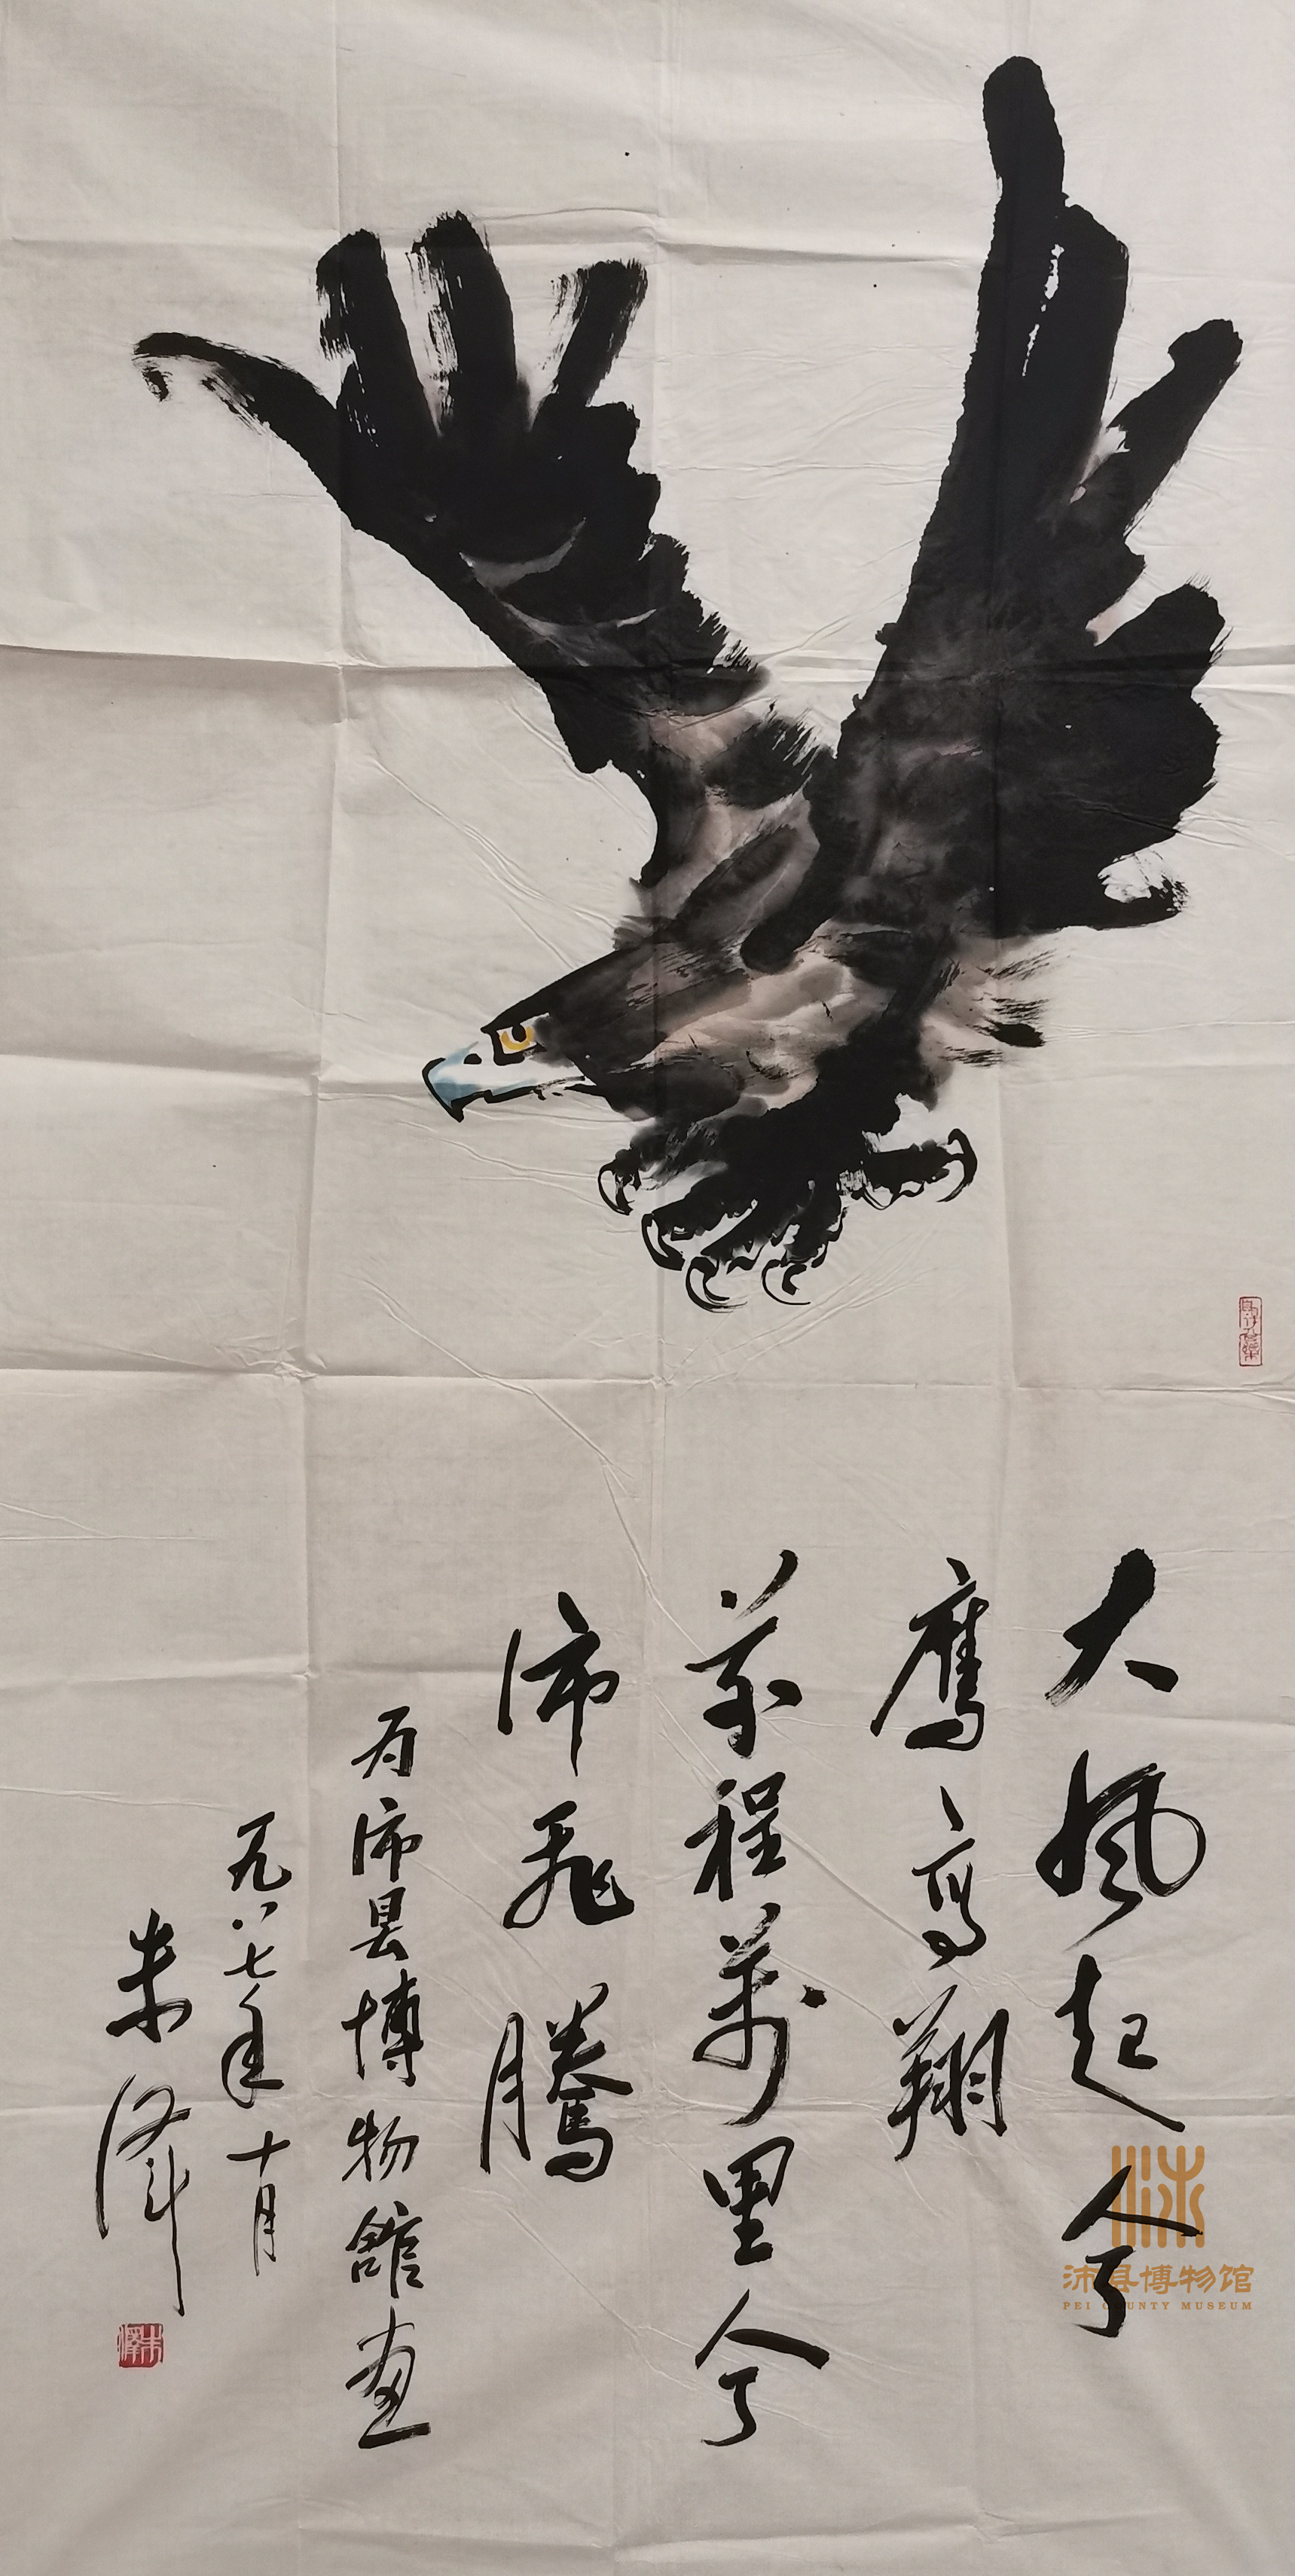 大風起兮
鹰高翔
前程萬里兮
沛飛騰
为沛县博物館画
一九八七年十月
朱泽
朱澤
沛县博物馆
PEI COUNTY MUSEUM